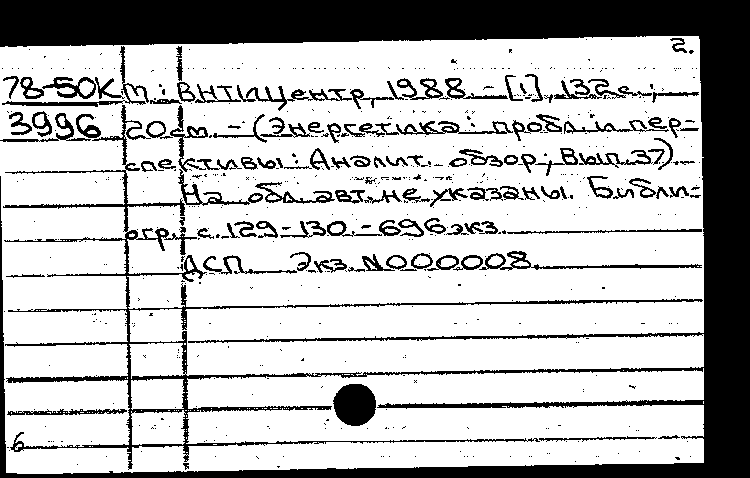 2.
78-50К м: ВНТИЦентр, 1988. - [1], 132 с.;
3996 20 см. - (Энергетика: пробл. и пер-
спективы: Аналит. обзор; Вып. 37).
На обл. авт. не указаны. Библи-
огр.: с. 129-130. - 696 экз.
ДСП. Экз. N000008.
6